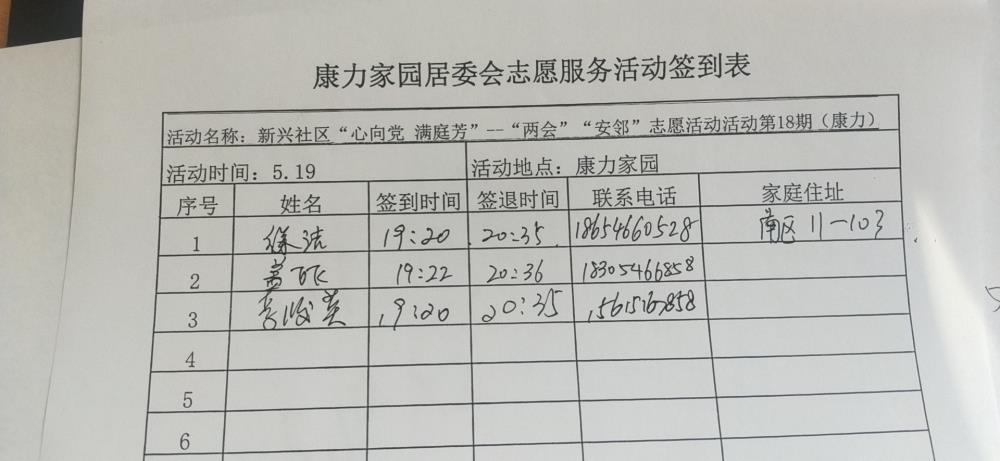 康力家园居委会志愿服务活动签到表
活动名称：新兴社区“心向党 满庭芳”--“两会”“安邻”志愿活动活动第18期（康力）
活动时间：5.19 活动地点：康力家园
序号 姓名 签到时间 签退时间 联系电话 家庭住址
1 19:20 20:35 18654660528 南区11-103
2 19:22 20:36 18305466858
3 19:20 20:35
4
5
6